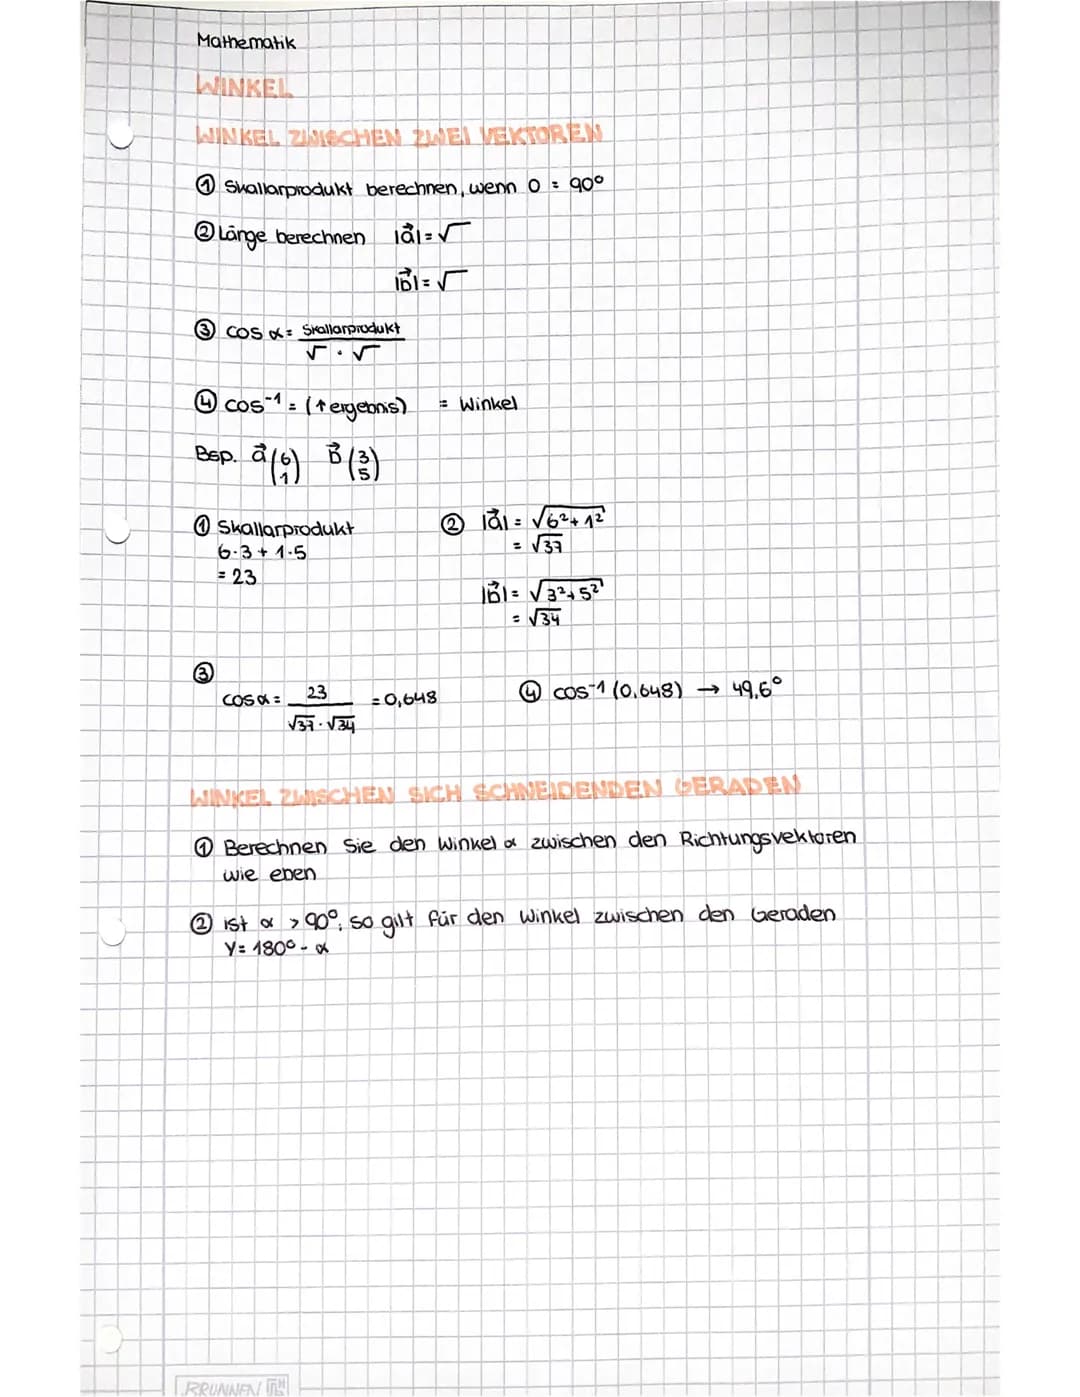 Mathematik
WINKEL
WINKEL ZWISCHEN ZWEI VEKTOREN
① Skallarprodukt berechnen, wenn 0 = 90°
② Länge berechnen |a⃗|=√
|b⃗|=√
③ cos α = Skallarprodukt / √ · √
④ cos⁻¹ = (↑ ergebnis) = Winkel
Bsp. a⃗ (6 1) b⃗ (3 5)
① Skallarprodukt
6·3 + 1·5
= 23
② |a⃗| = √6²+1²
= √37
|b⃗| = √3²+5²
= √34
③
cos α = 23 / √37 · √34 = 0,648
④ cos⁻¹ (0,648) → 49,6°
WINKEL ZWISCHEN SICH SCHNEIDENDEN GERADEN
① Berechnen Sie den Winkel α zwischen den Richtungsvektoren
wie eben
② ist α > 90°, so gilt für den Winkel zwischen den Geraden
γ = 180° - α
BRUNNEN